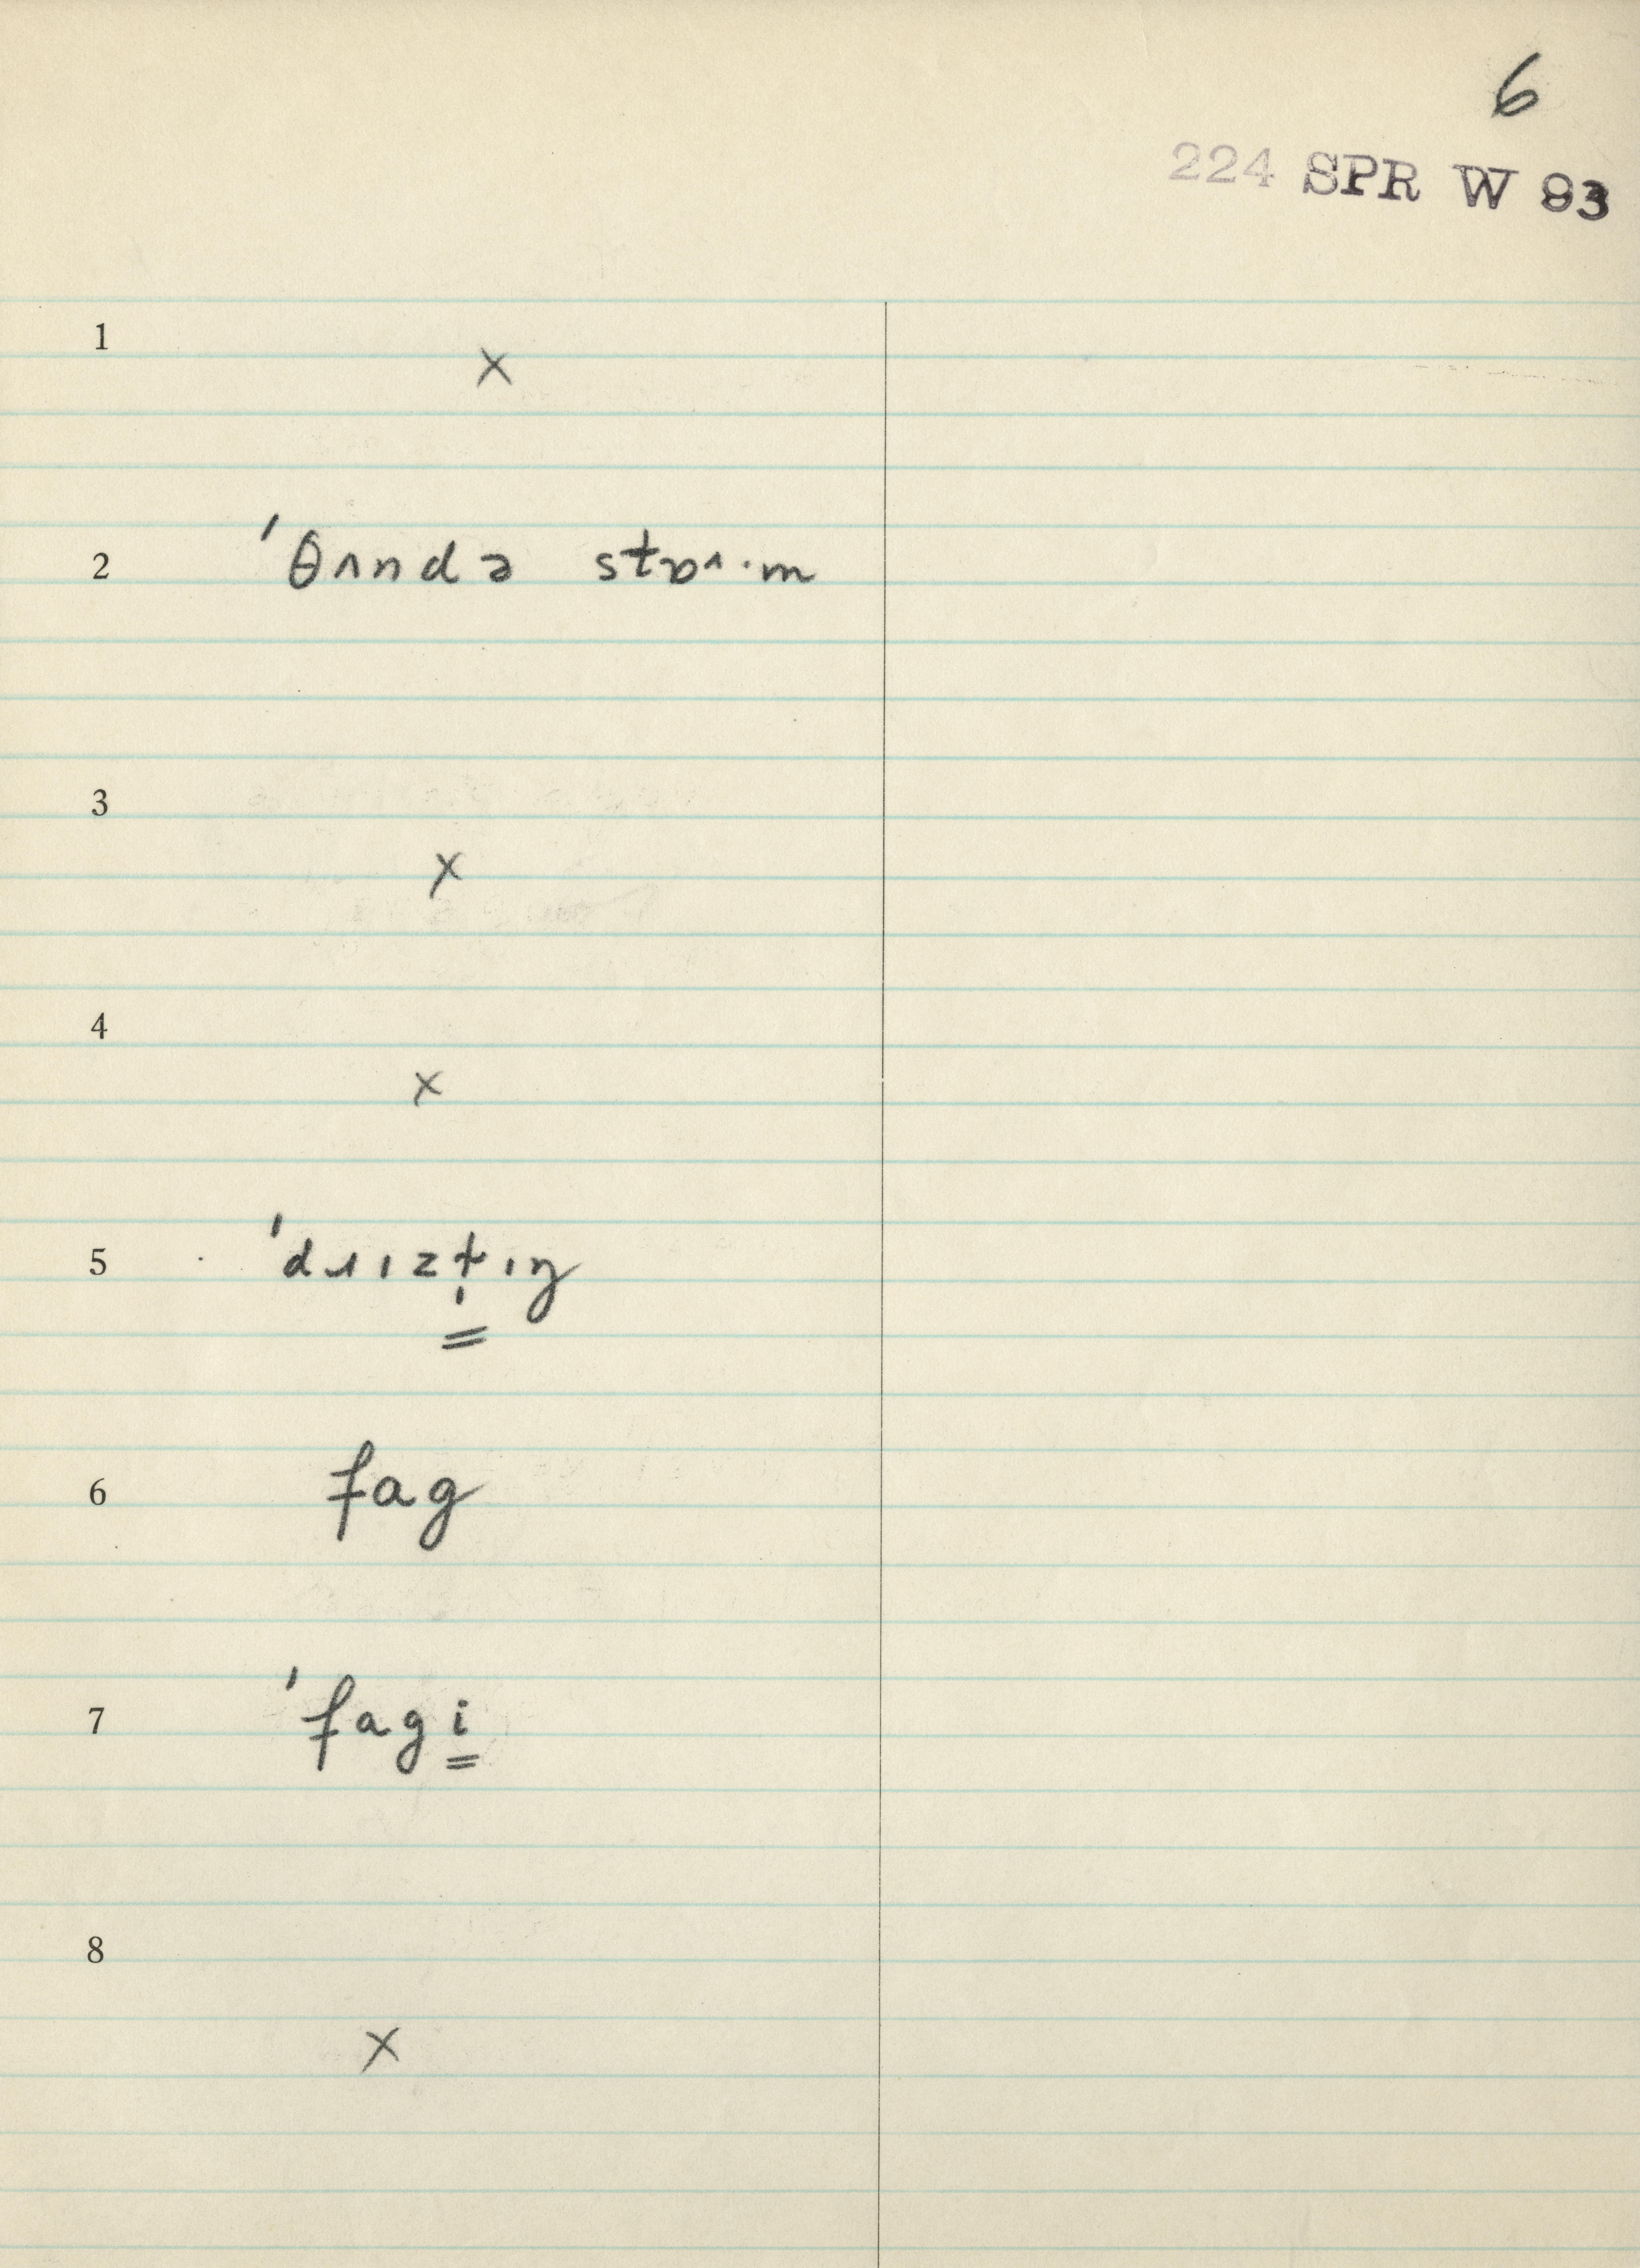 6
224 SPR W 93
1
x
2 ˈθʌndə stɒʌ·m
3
x
4
x
5 ˈdɹızt̩ıŋ
6 fag
7 ˈfagi
8
x